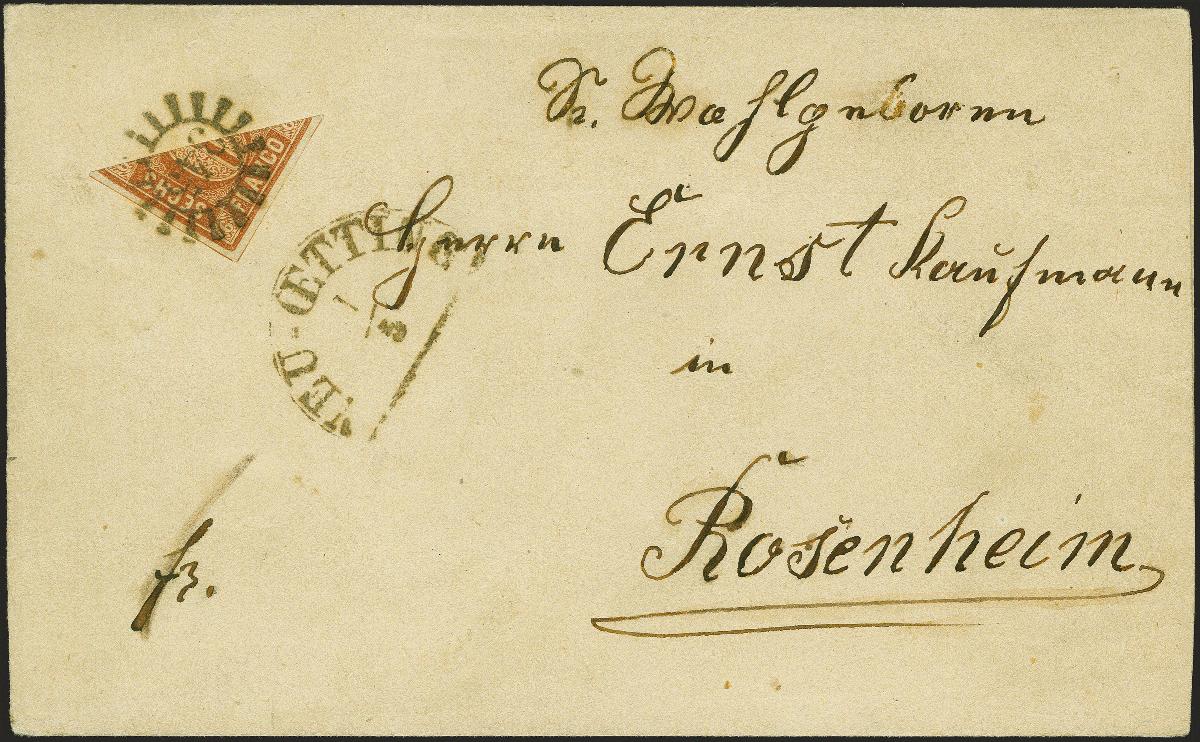 Sr. Wohlgeboren
Herrn Ernst Kaufmann
in
Rosenheim
fr.
NEU-ŒTTING
1
SECHS
FRANCO